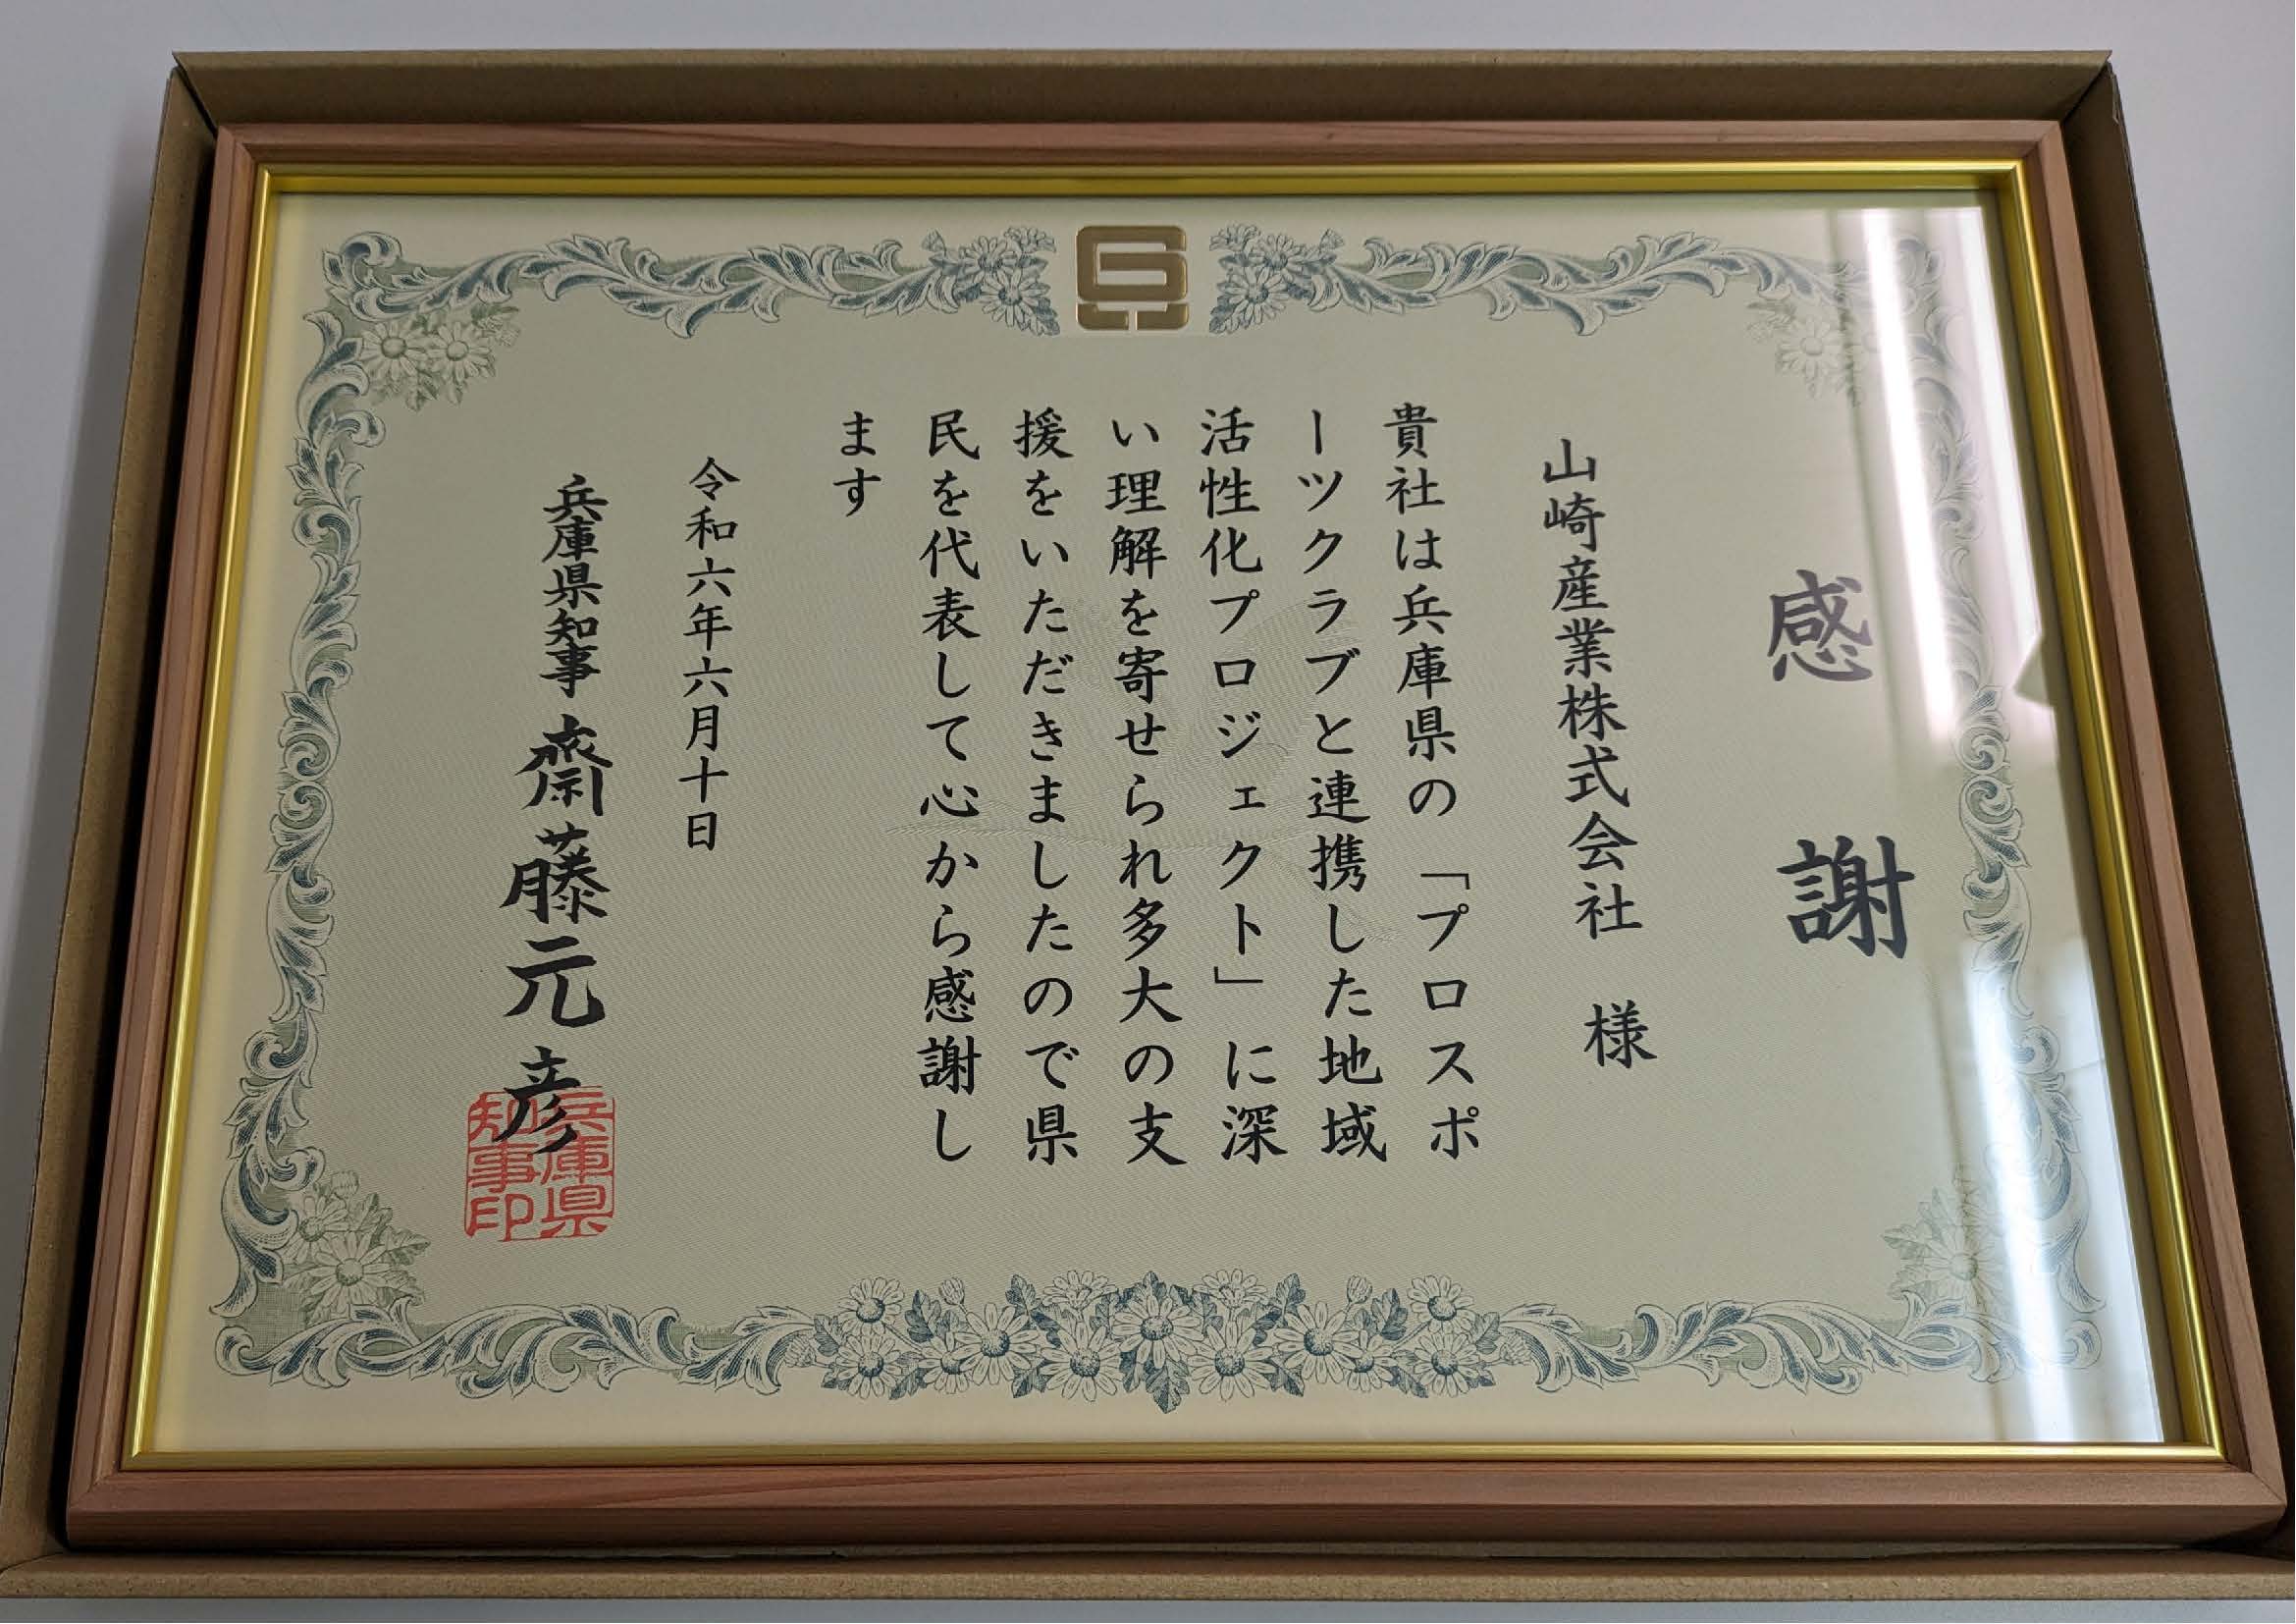 感謝
山崎産業株式会社 様
貴社は兵庫県の「プロスポ
ーツクラブと連携した地域
活性化プロジェクト」に深
い理解を寄せられ多大の支
援をいただきましたので県
民を代表して心から感謝し
ます
令和六年六月十日
兵庫県知事 齋藤元彦
兵庫県
知事印